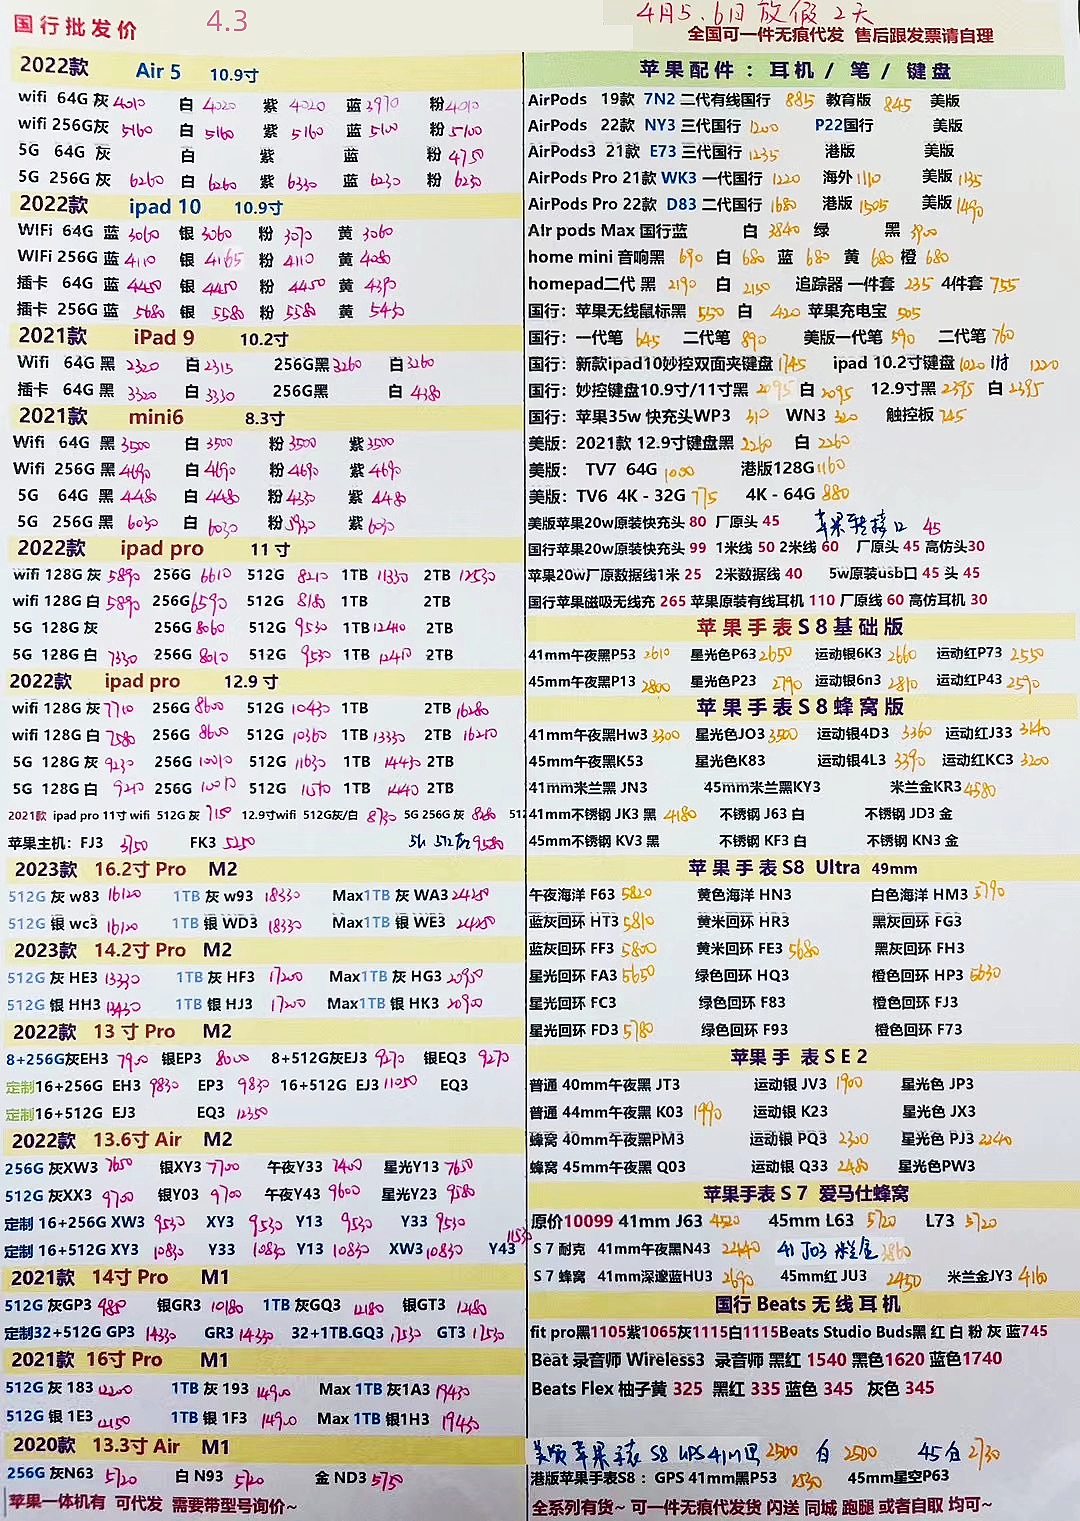 国行批发价 4.3
4月5.6日放假2天
全国可一件无痕代发 售后跟发票请自理
2022款 Air 5 10.9寸
wifi 64G 灰 4010 白 4020 紫 4020 蓝 3970 粉 4010
wifi 256G灰 5160 白 5160 紫 5160 蓝 5100 粉 5100
5G 64G 灰 白 紫 蓝 粉 4750
5G 256G 灰 6260 白 6260 紫 6330 蓝 6230 粉 6230
2022款 ipad 10 10.9寸
WIFi 64G 蓝 3060 银 3060 粉 3070 黄 3060
WIFi 256G 蓝 4110 银 4165 粉 4110 黄 4080
插卡 64G 蓝 4450 银 4450 粉 4450 黄 4390
插卡 256G 蓝 5680 银 5580 粉 5580 黄 5430
2021款 iPad 9 10.2寸
Wifi 64G 黑 2320 白 2315 256G黑 3260 白 3260
插卡 64G 黑 3320 白 3330 256G黑 白 4380
2021款 mini6 8.3寸
Wifi 64G 黑 3500 白 3500 粉 3500 紫 3500
Wifi 256G 黑 4690 白 4690 粉 4690 紫 4690
5G 64G 黑 4480 白 4480 粉 4330 紫 4480
5G 256G 黑 6030 白 6030 粉 5930 紫 6030
2022款 ipad pro 11 寸
wifi 128G 灰 5890 256G 6610 512G 8210 1TB 11330 2TB 12530
wifi 128G 白 5890 256G 6590 512G 8180 1TB 2TB
5G 128G 灰 256G 8060 512G 9530 1TB 12410 2TB
5G 128G 白 7330 256G 8010 512G 9530 1TB 12410 2TB
2022款 ipad pro 12.9 寸
wifi 128G 灰 7710 256G 8600 512G 10430 1TB 2TB 16280
wifi 128G 白 7580 256G 8600 512G 10360 1TB 13330 2TB 16210
5G 128G 灰 9230 256G 10010 512G 11630 1TB 14430 2TB
5G 128G 白 9210 256G 10010 512G 1TB 2TB
2021款 ipad pro 11寸 wifi 512G 灰 7150 12.9寸wifi 512G灰/白 8730 5G 256G 灰 512
苹果主机: FJ3 3750 FK3 5250 512灰 9580
2023款 16.2寸 Pro M2
512G 灰 w83 16120 1TB 灰 w93 18330 Max1TB 灰 WA3 24250
512G 银 wc3 16120 1TB 银 WD3 18330 Max1TB 银 WE3 24250
2023款 14.2寸 Pro M2
512G 灰 HE3 13330 1TB 灰 HF3 17200 Max1TB 灰 HG3 20950
512G 银 HH3 13430 1TB 银 HJ3 17200 Max1TB 银 HK3 20900
2022款 13 寸 Pro M2
8+256G灰EH3 7900 银EP3 8000 8+512G灰EJ3 9270 银EQ3 9270
定制16+256G EH3 9830 EP3 9830 16+512G EJ3 11050 EQ3
定制16+512G EJ3 EQ3 12350
2022款 13.6寸 Air M2
256G 灰XW3 7650 银XY3 7700 午夜Y33 7400 星光Y13 7650
512G 灰XX3 9700 银Y03 9700 午夜Y43 9600 星光Y23 9580
定制 16+256G XW3 9530 XY3 9530 Y13 9530 Y33 9530
定制 16+512G XY3 10830 Y33 10830 Y13 10830 XW3 10830 Y43 11530
2021款 14寸 Pro M1
512G 灰GP3 9850 银GR3 10180 1TB 灰GQ3 12180 银GT3 12480
定制32+512G GP3 14330 GR3 14330 32+1TB.GQ3 17530 GT3 17530
2021款 16寸 Pro M1
512G 灰 183 12200 1TB 灰 193 14900 Max 1TB 灰1A3 19430
512G 银 1E3 12150 1TB 银 1F3 14900 Max 1TB 银1H3 19450
2020款 13.3寸 Air M1
256G 灰N63 5720 白 N93 5720 金 ND3 5750
苹果一体机有 可代发 需要带型号询价~
苹果配件：耳机 / 笔 / 键盘
AirPods 19款 7N2 二代有线国行 885 教育版 845 美版
AirPods 22款 NY3 三代国行 1200 P22国行 美版
AirPods3 21款 E73 三代国行 1235 港版 美版
AirPods Pro 21款 WK3 一代国行 1220 海外 1110 美版 1135
AirPods Pro 22款 D83 二代国行 1680 港版 1505 美版 1490
AIr pods Max 国行蓝 白 3840 绿 黑 3900
home mini 音响黑 690 白 680 蓝 680 黄 680 橙 680
homepad二代 黑 2190 白 2150 追踪器 一件套 235 4件套 755
国行: 苹果无线鼠标黑 550 白 420 苹果充电宝 505
国行: 一代笔 645 二代笔 890 美版一代笔 590 二代笔 760
国行: 新款ipad10妙控双面夹键盘 1745 ipad 10.2寸键盘 1020 11寸 1220
国行: 妙控键盘10.9寸/11寸黑 2095 白 2095 12.9寸黑 2395 白 2395
国行: 苹果35w 快充头WP3 310 WN3 320 触控板 745
美版: 2021款 12.9寸键盘黑 2260 白 2260
美版: TV7 64G 1000 港版128G 1160
美版: TV6 4K - 32G 775 4K - 64G 880
美版苹果20w原装快充头 80 厂原头 45 苹果转接口 45
国行苹果20w原装快充头 99 1米线 50 2米线 60 厂原头 45 高仿头30
苹果20w厂原数据线1米 25 2米数据线 40 5w原装usb口 45 头 45
国行苹果磁吸无线充 265 苹果原装有线耳机 110 厂原线 60 高仿耳机 30
苹果手表S8基础版
41mm午夜黑P53 2610 星光色P63 2650 运动银6K3 2660 运动红P73 2550
45mm午夜黑P13 2800 星光色P23 2790 运动银6n3 2810 运动红P43 2590
苹果手表S8蜂窝版
41mm午夜黑Hw3 3300 星光色JO3 3500 运动银4D3 3360 运动红J33 3140
45mm午夜黑K53 星光色K83 运动银4L3 3390 运动红KC3 3200
41mm米兰黑 JN3 45mm米兰黑KY3 米兰金KR3 4580
41mm不锈钢 JK3 黑 4180 不锈钢 J63 白 不锈钢 JD3 金
45mm不锈钢 KV3 黑 不锈钢 KF3 白 不锈钢 KN3 金
苹果手表S8 Ultra 49mm
午夜海洋 F63 5820 黄色海洋 HN3 白色海洋 HM3 5790
蓝灰回环 HT3 5810 黄米回环 HR3 黑灰回环 FG3
蓝灰回环 FF3 5800 黄米回环 FE3 5680 黑灰回环 FH3
星光回环 FA3 5650 绿色回环 HQ3 橙色回环 HP3 5630
星光回环 FC3 绿色回环 F83 橙色回环 FJ3
星光回环 FD3 5780 绿色回环 F93 橙色回环 F73
苹果手 表SE2
普通 40mm午夜黑 JT3 运动银 JV3 1900 星光色 JP3
普通 44mm午夜黑 K03 1990 运动银 K23 星光色 JX3
蜂窝 40mm午夜黑PM3 运动银 PQ3 2300 星光色 PJ3 2240
蜂窝 45mm午夜黑 Q03 运动银 Q33 2480 星光色PW3
苹果手表S7 爱马仕蜂窝
原价10099 41mm J63 4520 45mm L63 5720 L73 5720
S7 耐克 41mm午夜黑N43 2240 41 J03 米兰金 3860
S7 蜂窝 41mm深邃蓝HU3 2690 45mm红 JU3 2450 米兰金JY3 4160
国行 Beats 无线耳机
fit pro黑1105紫1065灰1115白1115Beats Studio Buds黑 红 白 粉 灰 蓝745
Beat 录音师 Wireless3 录音师 黑红 1540 黑色1620 蓝色1740
Beats Flex 柚子黄 325 黑红 335 蓝色 345 灰色 345
美版苹果手表 S8 GPS 41M黑 2500 白 2500 45白 2730
港版苹果手表S8：GPS 41mm黑P53 2530 45mm星空P63
全系列有货~ 可一件无痕代发货 闪送 同城 跑腿 或者自取 均可~